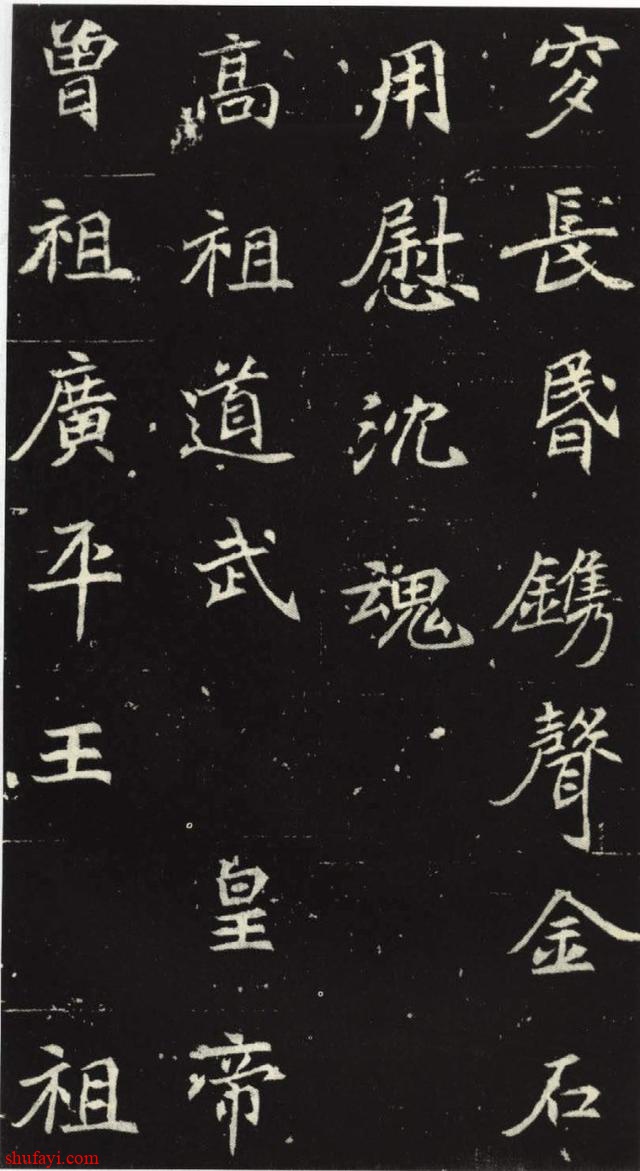 穸長昬鐫聲金石
用慰沈魂
高祖道武皇帝
曾祖廣平王祖
shufayi.com